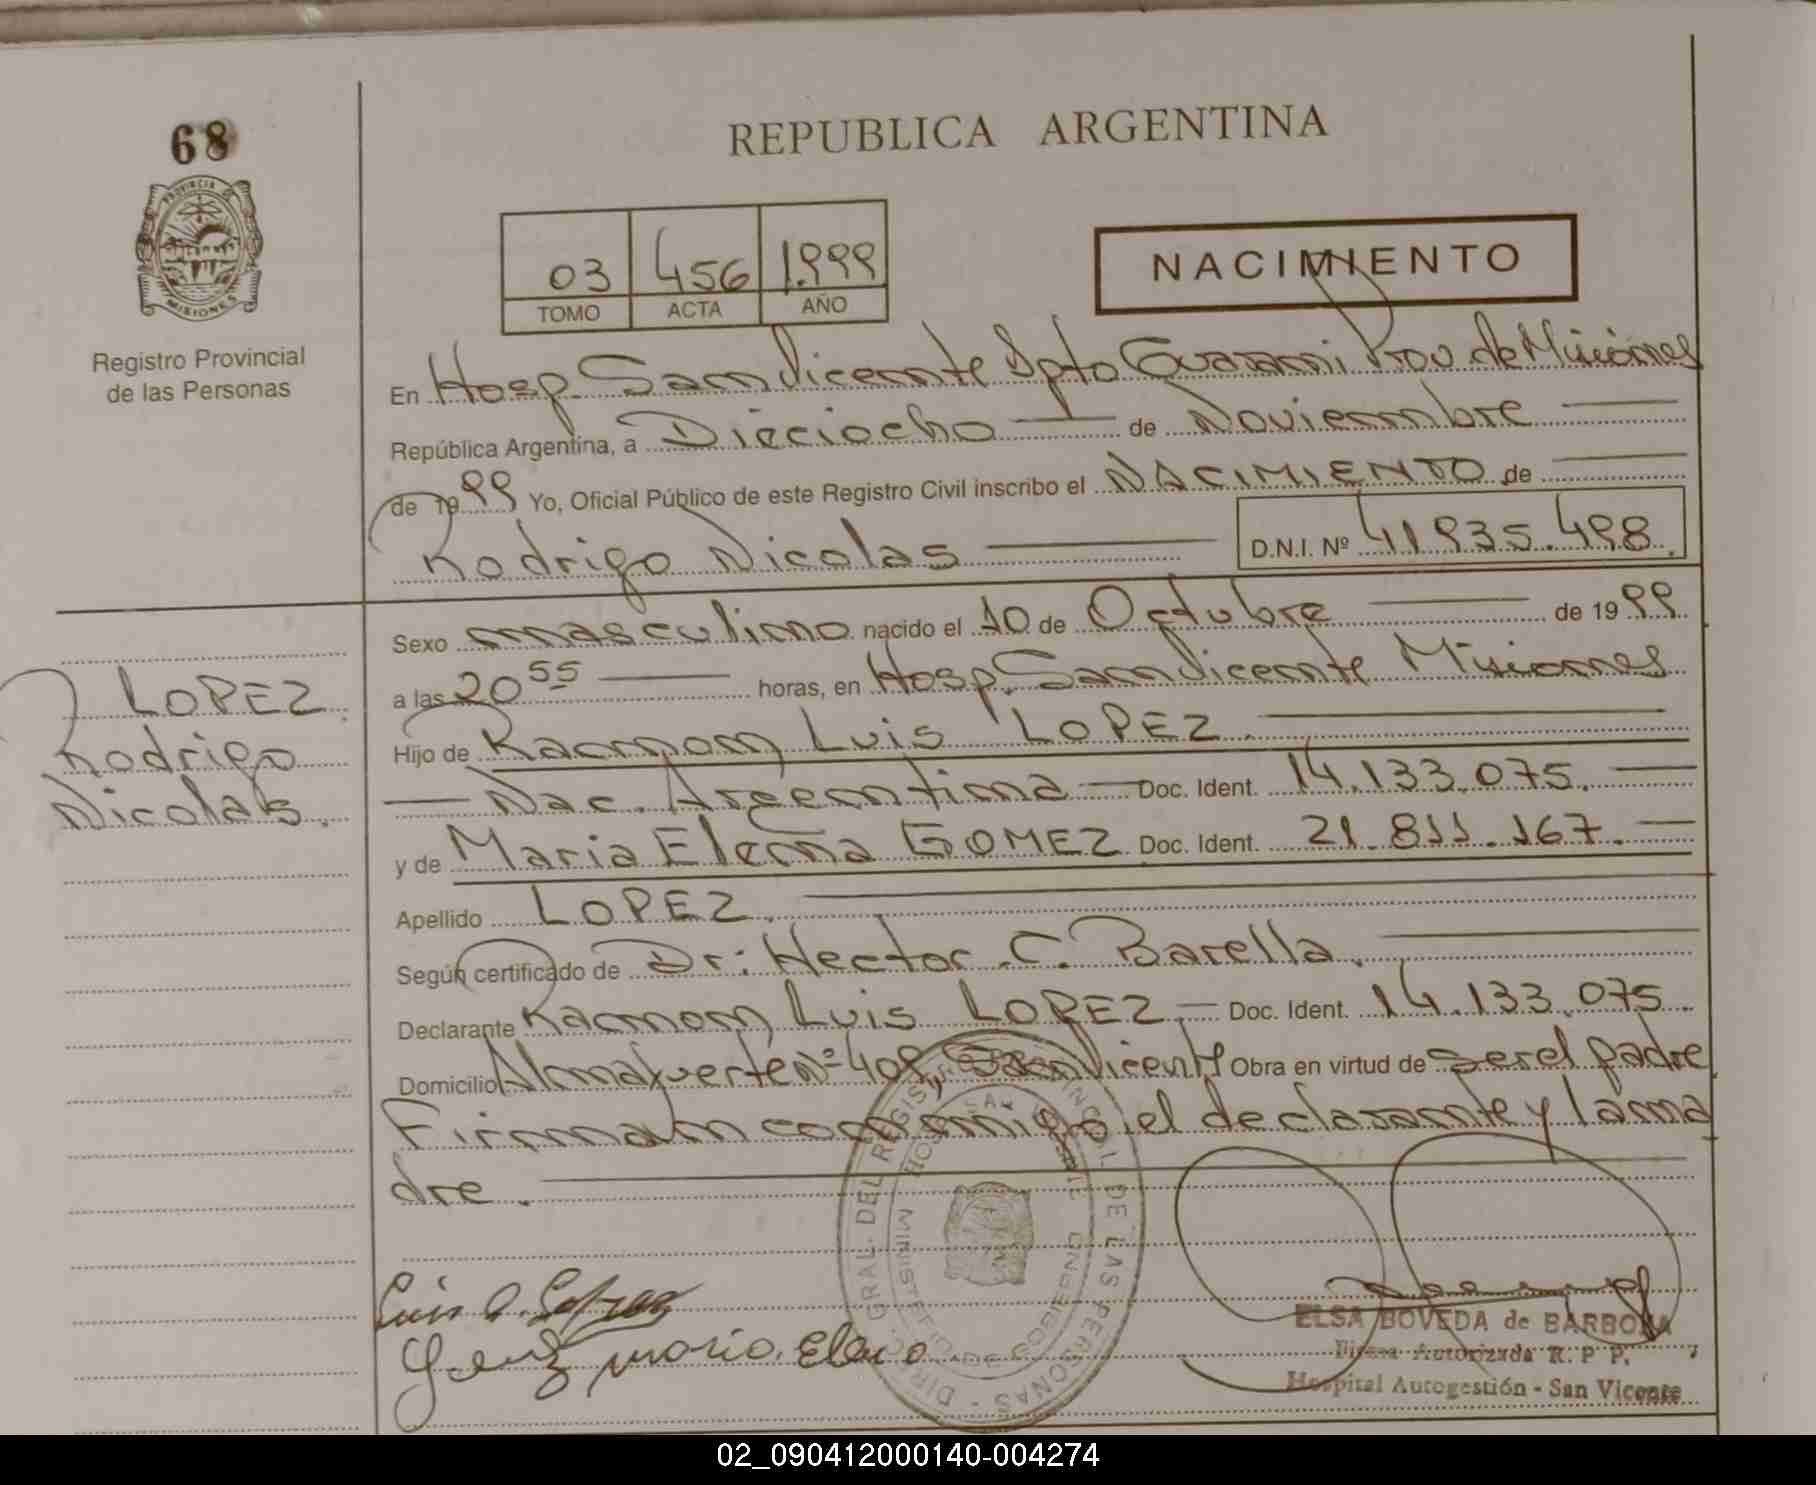 68
PROVINCIA DE
MISIONES
Registro Provincial
de las Personas
REPUBLICA ARGENTINA
03 456 1.999
TOMO ACTA AÑO
NACIMIENTO
En Hosp. San Vicente Dpto Guarani Prov. de Misiones
República Argentina, a Dieciocho de Noviembre
de 1999 Yo, Oficial Público de este Registro Civil inscribo el NACIMIENTO de
Rodrigo Nicolas D.N.I. Nº 41.935.498.
Sexo masculino nacido el 10 de Octubre de 1999
a las 20 55 horas, en Hosp. San Vicente Misiones
Hijo de Ramon Luis LOPEZ.
Nac. Argentina Doc. Ident. 14.133.075.
y de Maria Elena GOMEZ Doc. Ident. 21.811.167.
Apellido LOPEZ.
Según certificado de Dr: Hector C. Barella.
Declarante Ramon Luis LOPEZ Doc. Ident. 14.133.075
Domicilio Almafuerte Nº 409, San Vicente Obra en virtud de ser el padre
Firman conmigo el declarante y la ma
dre.
LOPEZ
Rodrigo
Nicolas.
DIREC. GRAL. DEL REGISTRO PROVINCIAL DE LAS PERSONAS
MINISTERIO DE GOBIERNO
Luis
maria Elena
ELSA BOVEDA de BARBOZA
Firma Autorizada R. P. P.
Hospital Autogestión - San Vicente
02_090412000140-004274